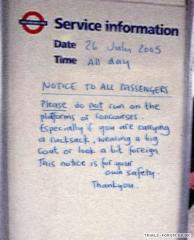 Service information
Date 26 July 2005
Time All day
NOTICE TO ALL PASSENGERS
Please do not run on the
platforms or concourses.
Especially if you are carrying
a rucksack, wearing a big
coat or look a bit foreign.
This notice is for your
own safety.
Thankyou.